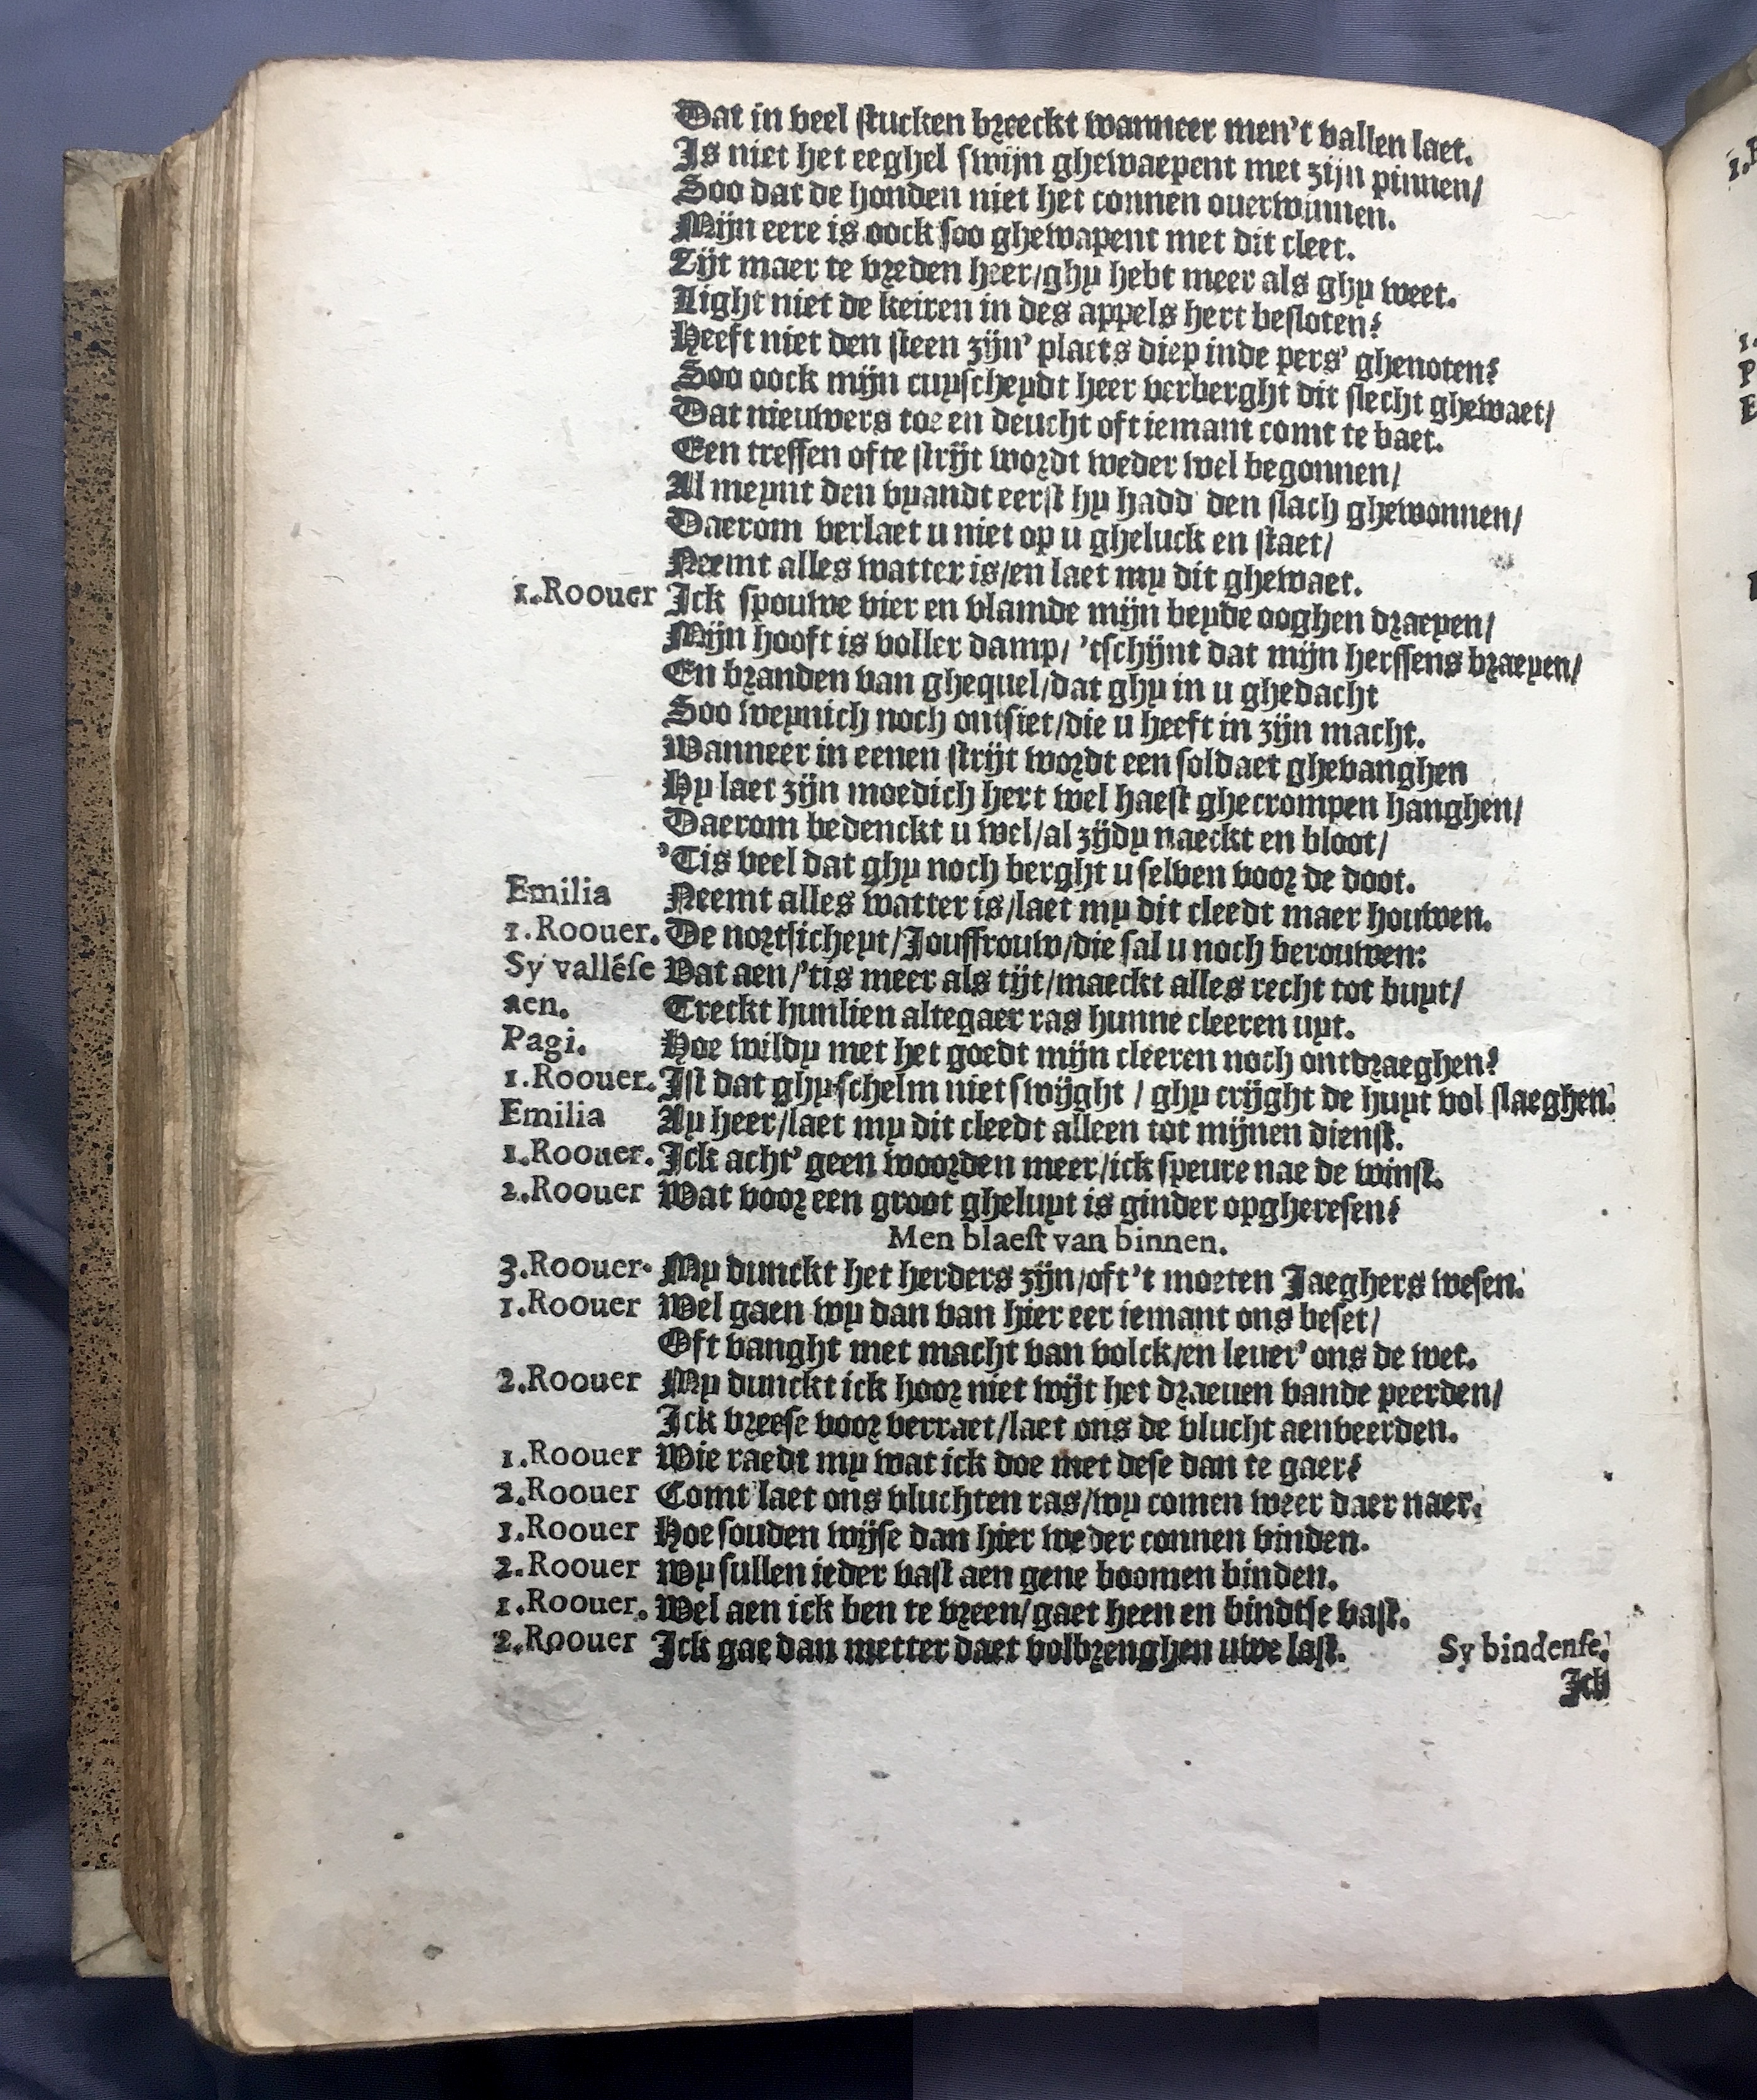 Dat in veel stucken breeckt wanneer men't vallen laet.
Is niet het eeghel swijn ghewaepent met zijn pinnen/
Soo dat de honden niet het connen ouerwinnen.
Mijn eere is oock soo ghewapent met dit cleet.
Zijt maer te vreden heer/ghy hebt meer als ghy weet.
Light niet de keiren in des appels hert besloten?
Heeft niet den steen zijn' plaets diep inde pers' ghenoten?
Soo oock mijn cuyscheydt heer verberght dit slecht ghewaet/
Dat nieuwers toe en deucht oft iemant comt te baet.
Een treffen ofte strijt wordt weder wel begonnen/
Al meynt den vyandt eerst hy hadd' den slach ghewonnen/
Daerom verlaet u niet op u gheluck en staet/
Neemt alles watter is/en laet my dit ghewaet.
1.Roouer Ick spouwe vier en vlam de mijn beyde ooghen draeyen/
Mijn hooft is voller damp/ 'tschijnt dat mijn herssens braeyen/
En branden van ghequel/dat ghy in u ghedacht
Soo weynich noch ontsiet/die u heeft in zijn macht.
Wanneer in eenen strijt wordt een soldaet ghevanghen
Hy laet zijn moedich hert wel haest ghecrompen hanghen/
Daerom bedenckt u wel/al zijdy naeckt en bloot/
'Tis veel dat ghy noch berght u selven voor de doot.
Emilia Neemt alles watter is/laet my dit cleedt maer houwen.
1.Roouer. De nortsicheyt/Jouffrouw/die sal u noch berouwen:
Sy vallése Vat aen/'tis meer als tijt/maeckt alles recht tot buyt/
aen. Treckt hunlien altegaer ras hunne cleeren uyt.
Pagi. Hoe wildy met het goedt mijn cleeren noch ontdraeghen?
1.Roouer. Ist dat ghy schelm niet swijght / ghy crijght de huyt vol slaeghen.
Emilia Ay heer/laet my dit cleedt alleen tot mijnen dienst.
1.Roouer. Ick acht' geen woorden meer/ick speure nae de winst.
2.Roouer Wat voor een groot gheluyt is ginder opgheresen?
Men blaest van binnen.
3.Roouer. My dunckt het herders zijn/oft't moeten Jaeghers wesen.
1.Roouer Wel gaen wy dan van hier eer iemant ons beset/
Oft vanght met macht van volck/en leuer' ons de wet.
2.Roouer My dunckt ick hoor niet wijt het draeuen vande peerden/
Ick vreese voor verraet/laet ons de vlucht aenveerden.
1.Roouer Wie raedt my wat ick doe met dese dan te gaer?
2.Roouer Comt laet ons vluchten ras/wy comen weer daer naer.
1.Roouer Hoe souden wijse dan hier weder connen vinden.
2.Roouer Wy sullen ieder vast aen gene boomen binden.
1.Roouer. Wel aen ick ben te vreen/gaet heen en bindtse vast.
2.Roouer Ick gae dan metter daet volbrenghen uwe last. Sy bindense.
Ick